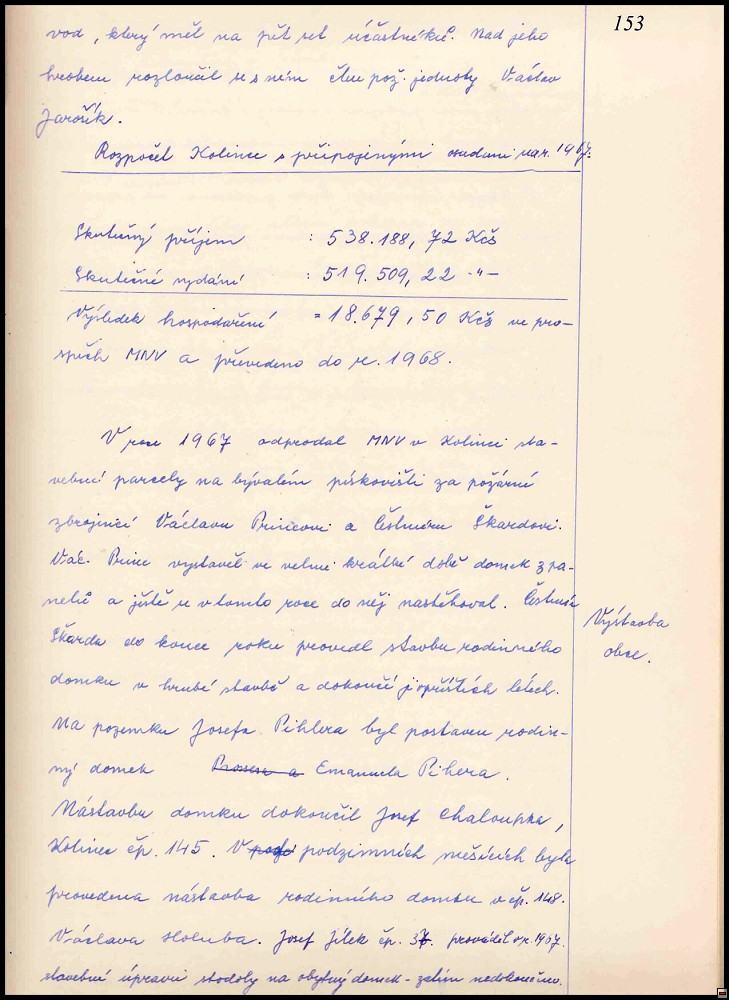 153
vod, který měl na pět set účastníků. Nad jeho
hrobem rozloučil se s ním člen pož. jednoty Václav
Jarošík.
Rozpočet Kolince s připojenými osadami na r. 1967.
Skutečný příjem : 538.188,72 Kčs
Skutečné vydání : 519.509,22 -"-
Výsledek hospodaření = 18.679,50 Kčs ve pro-
spěch MNV a převedeno do r. 1968.
V roce 1967 odprodal MNV v Kolinci sta-
vební parcely na bývalém pískovišti za požární
zbrojnicí Václavu Princovi a Čestmíru Škardovi.
Vác. Princ vystavěl ve velmi krátké době domek z pa-
nelů a ještě se v tomto roce do něj nastěhoval. Čestmír
Škarda do konce roku provedl stavbu rodinného
domku v hrubé stavbě a dokončí j. v příštích letech.
Výstavba
obce.
Na pozemku Josefa Pihlera byl postaven rodin-
ný domek Emanuela Pihera.
Nástavbu domku dokončil Josef Chaloupka,
Kolinec čp. 145. V podzimních měsících byla
provedena nástavba rodinného domku v čp. 148.
Václava Holuba. Josef Jílek čp. 37. prováděl v r. 1967.
stavební úpravu stodoly na obytný domek - zatím nedokončeno.